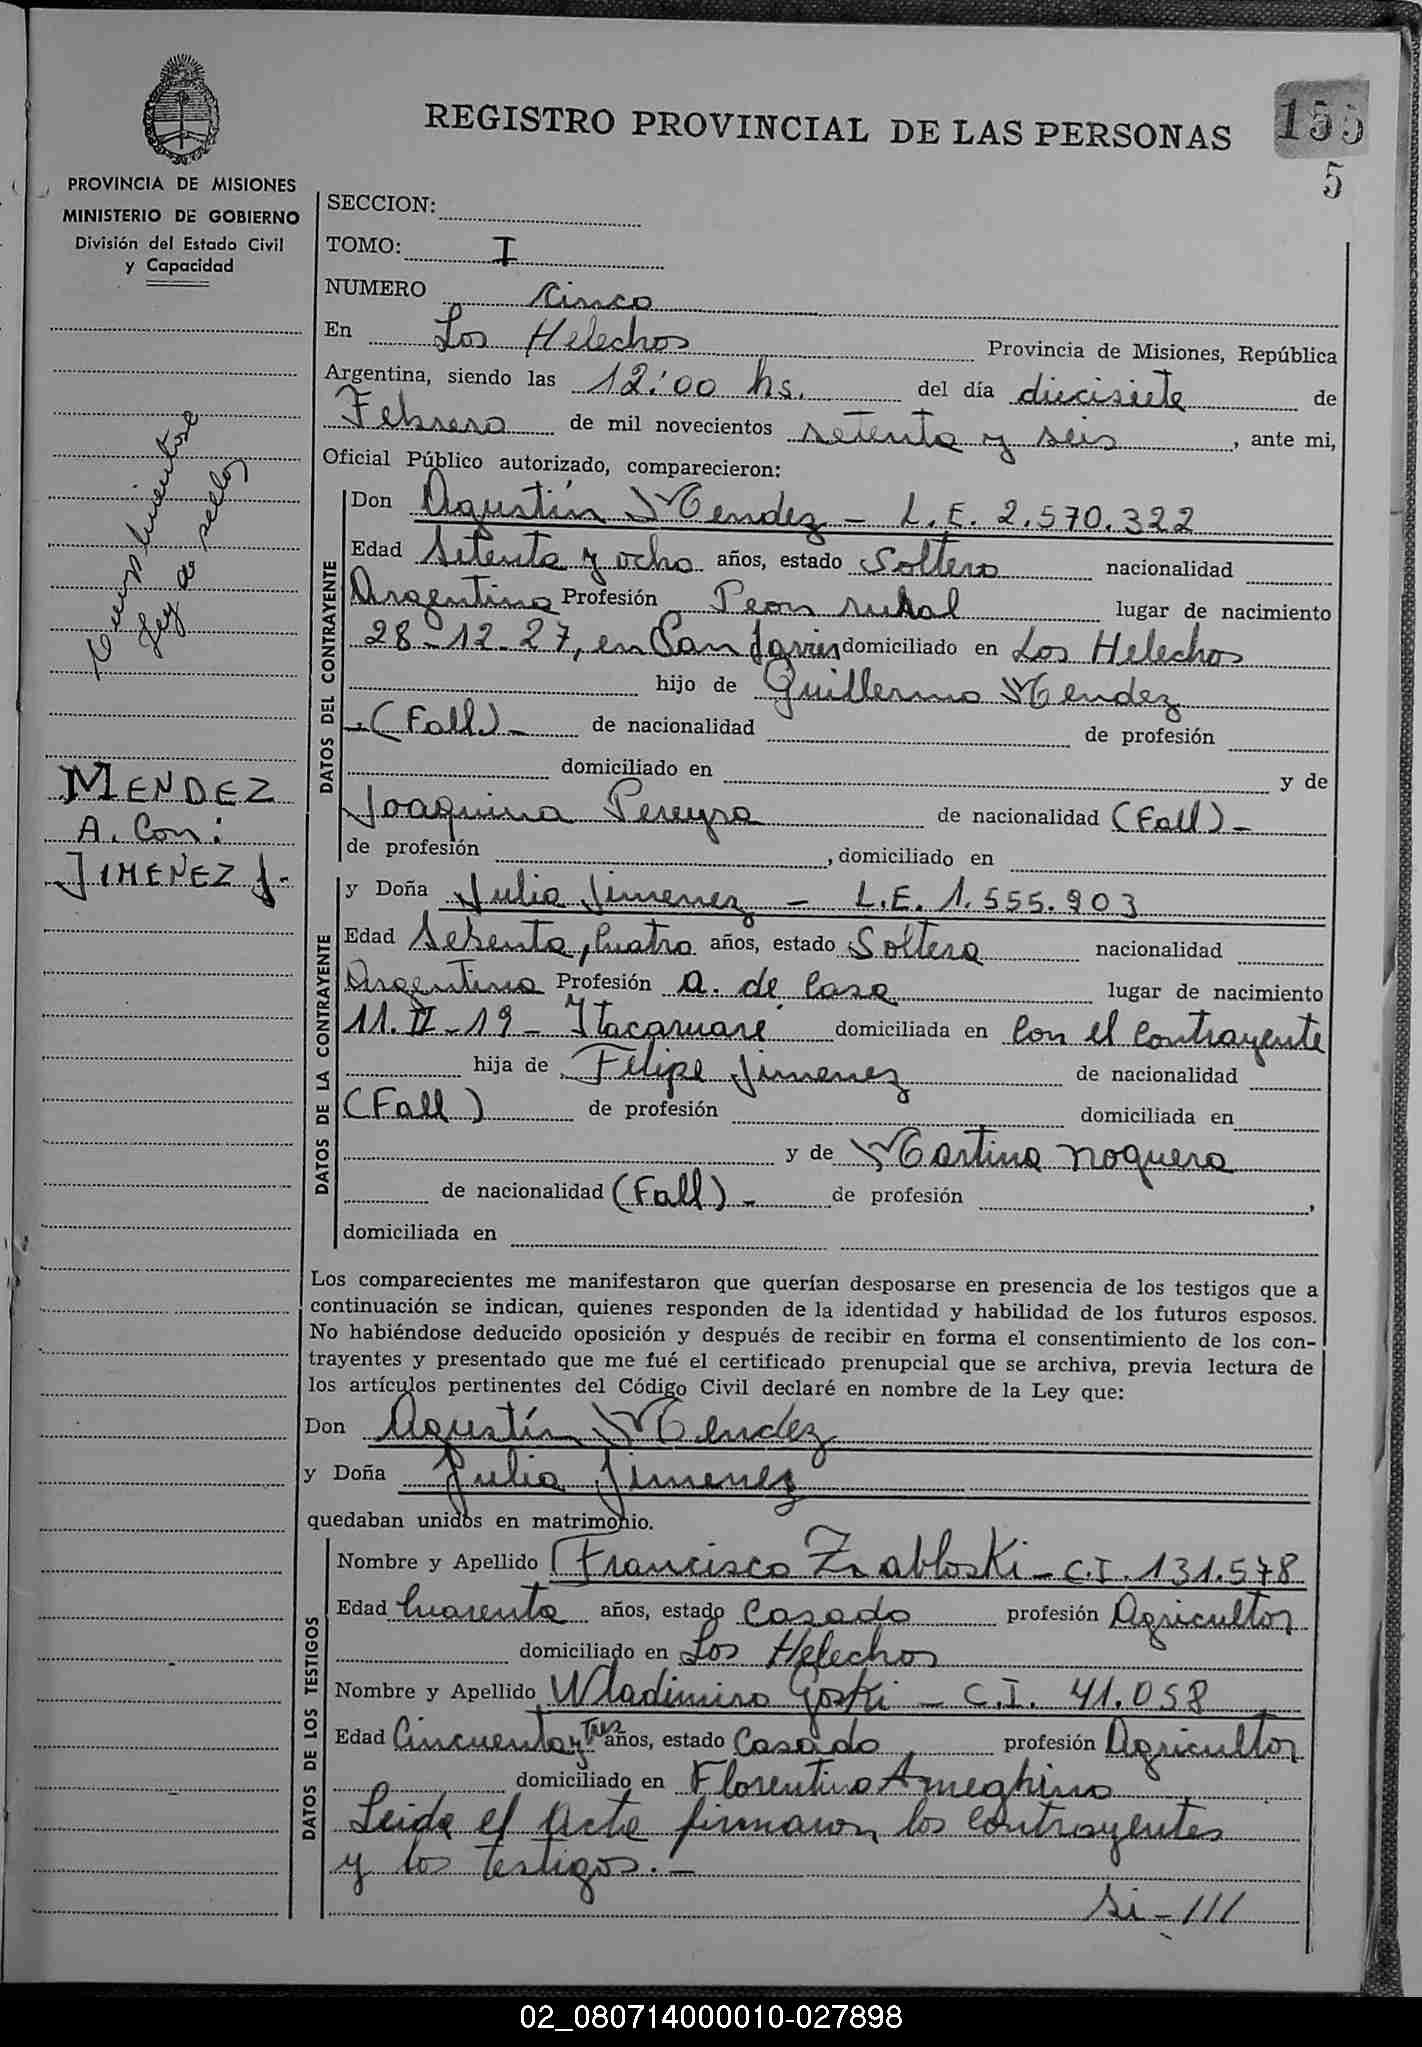 REGISTRO PROVINCIAL DE LAS PERSONAS
155
5
PROVINCIA DE MISIONES
MINISTERIO DE GOBIERNO
División del Estado Civil
y Capacidad
SECCION:
TOMO: I
NUMERO Cinco
En Los Helechos Provincia de Misiones, República
Argentina, siendo las 12:00 hs. del día diecisiete de
Febrero de mil novecientos setenta y seis, ante mi,
Oficial Público autorizado, comparecieron:
Cumplimentose
Ley de sellos
MENDEZ
A. Con:
JIMENEZ J.
DATOS DEL CONTRAYENTE
Don Agustín Mendez - L.E. 2.570.322
Edad Setenta y ocho años, estado Soltero nacionalidad
Argentino Profesión Peon rural lugar de nacimiento
28-12-27, en San Javier domiciliado en Los Helechos
hijo de Guillermo Mendez
-(Fall)- de nacionalidad de profesión
domiciliado en y de
Joaquina Pereyra de nacionalidad (Fall)-
de profesión , domiciliado en
DATOS DE LA CONTRAYENTE
y Doña Julia Jimenez - L.E. 1.555.903
Edad Setenta y cuatro años, estado Soltera nacionalidad
Argentina Profesión A. de Casa lugar de nacimiento
11-II-19- Itacaruaré domiciliada en Con el Contrayente
hija de Felipe Jimenez de nacionalidad
(Fall) de profesión domiciliada en
y de Martina Noguera
de nacionalidad (Fall)- de profesión ,
domiciliada en
Los comparecientes me manifestaron que querían desposarse en presencia de los testigos que a
continuación se indican, quienes responden de la identidad y habilidad de los futuros esposos.
No habiéndose deducido oposición y después de recibir en forma el consentimiento de los con-
trayentes y presentado que me fué el certificado prenupcial que se archiva, previa lectura de
los artículos pertinentes del Código Civil declaré en nombre de la Ley que:
Don Agustín Mendez
y Doña Julia Jimenez
quedaban unidos en matrimonio.
DATOS DE LOS TESTIGOS
Nombre y Apellido Francisco Zabloski - C.I. 131.578
Edad Cuarenta años, estado Casado profesión Agricultor
domiciliado en Los Helechos
Nombre y Apellido Wladimiro Goski - C.I. 41.058
Edad Cincuenta y Tres años, estado Casado profesión Agricultor
domiciliado en Florentino Ameghino
Leida el Acta firmaron los contrayentes
y los testigos.-
Si-///
02_080714000010-027898